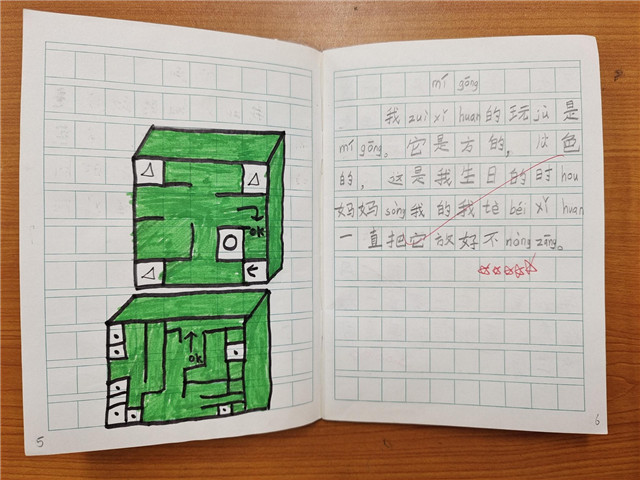 OK
OK
5
mí gōng
我zuì xǐ huan的玩jù是
mí gōng。它是方的，色
的，这是我生日的时hou
妈妈sòng我的我tè béi xǐ huan
一直把它放好不nòng zāng。
6